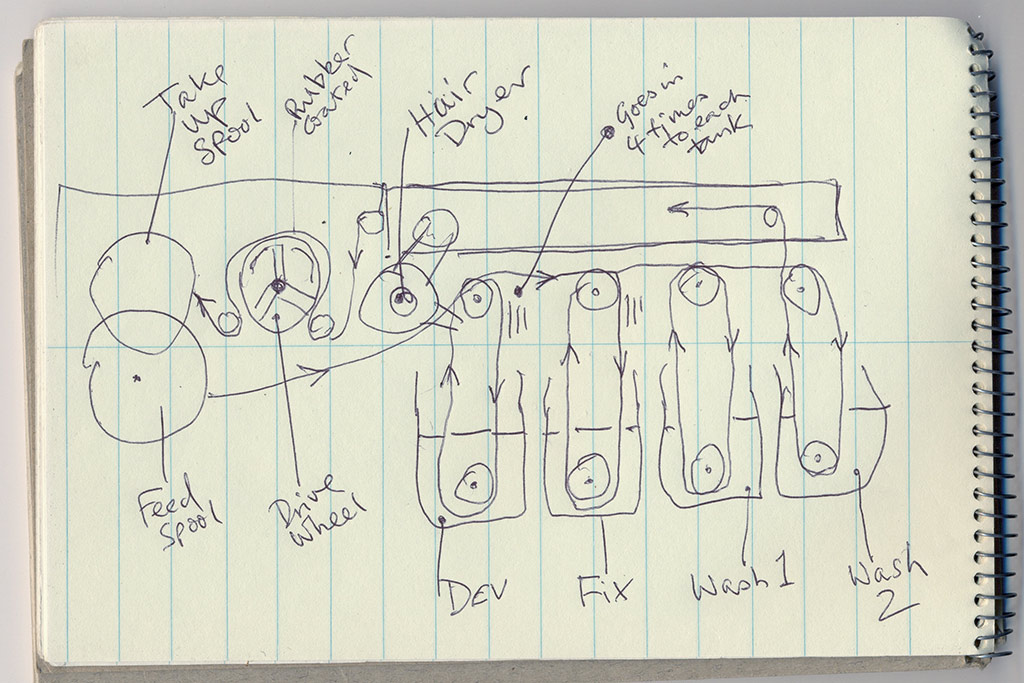 Take
up
Spool
Rubber
Coated
Hair
Dryer.
Goes in
4 times
to each
tank
Feed
Spool
Drive
Wheel
DEV
Fix
Wash 1
Wash
2